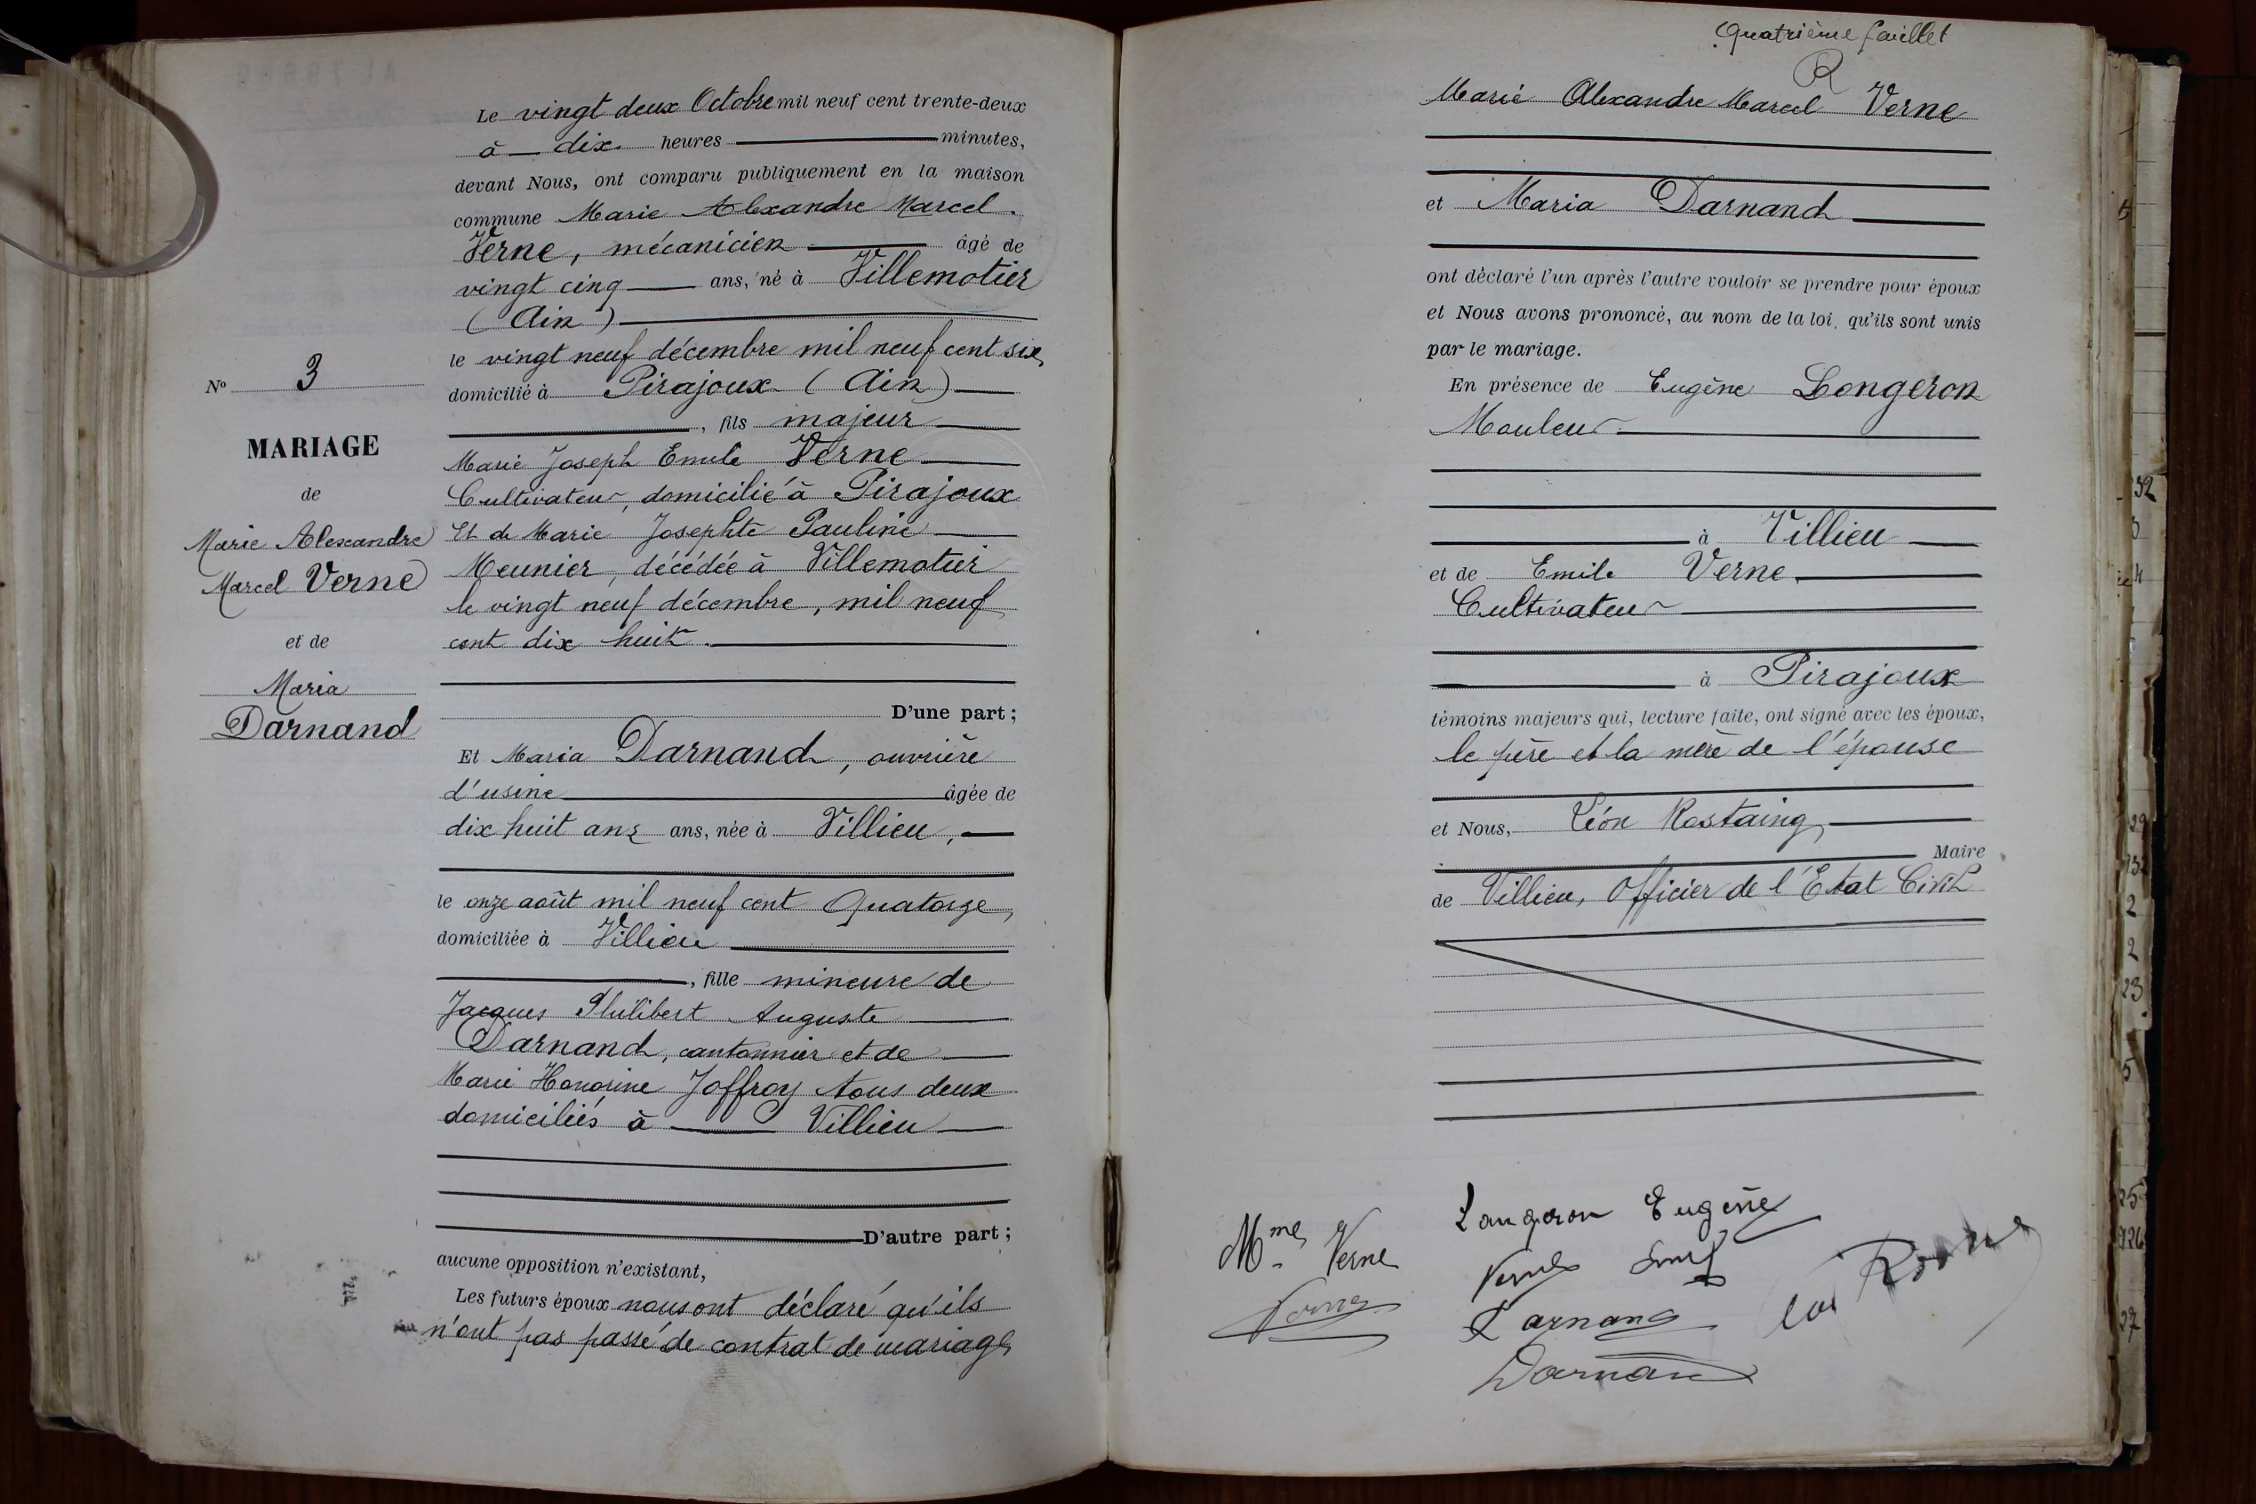 Le vingt deux Octobre mil neuf cent trente-deux
à dix heures minutes,
devant Nous, ont comparu publiquement en la maison
commune Marie Alexandre Marcel
Verne, mécanicien âgé de
vingt cinq ans, né à Villemotier
(Ain)
le vingt neuf décembre mil neuf cent six
domicilié à Pirajoux (Ain)
, fils majeur
Marie Joseph Emile Verne
Cultivateur, domicilié à Pirajoux
Et de Marie Josephte Pauline
Meunier, décédée à Villemotier
le vingt neuf décembre, mil neuf
cent dix huit.
D'une part ;
Et Maria Darnand, ouvrière
d'usine âgée de
dix huit ans ans, née à Villieu,
le onze août mil neuf cent Quatorze,
domiciliée à Villieu
, fille mineure de
Jacques Philibert Auguste
Darnand, cantonnier et de
Marie Honorine Joffroy tous deux
domiciliés à Villieu
D'autre part ;
aucune opposition n'existant,
Les futurs époux nous ont déclaré qu'ils
n'ont pas passé de contrat de mariage
No 3
MARIAGE
de
Marie Alexandre
Marcel Verne
et de
Maria
Darnand
Quatrième feuillet
R
Marie Alexandre Marcel Verne
et Maria Darnand
ont déclaré l'un après l'autre vouloir se prendre pour époux
et Nous avons prononcé, au nom de la loi, qu'ils sont unis
par le mariage.
En présence de Eugène Longeron
Mouleur
à Villieu
et de Emile Verne
Cultivateur
à Pirajoux
témoins majeurs qui, lecture faite, ont signé avec les époux,
le père et la mère de l'épouse
et Nous, Léon Rostaing,
Maire
de Villieu, Officier de l'Etat Civil
Longeron Eugène
Mme Verne
Verne
Darnand
Darnand